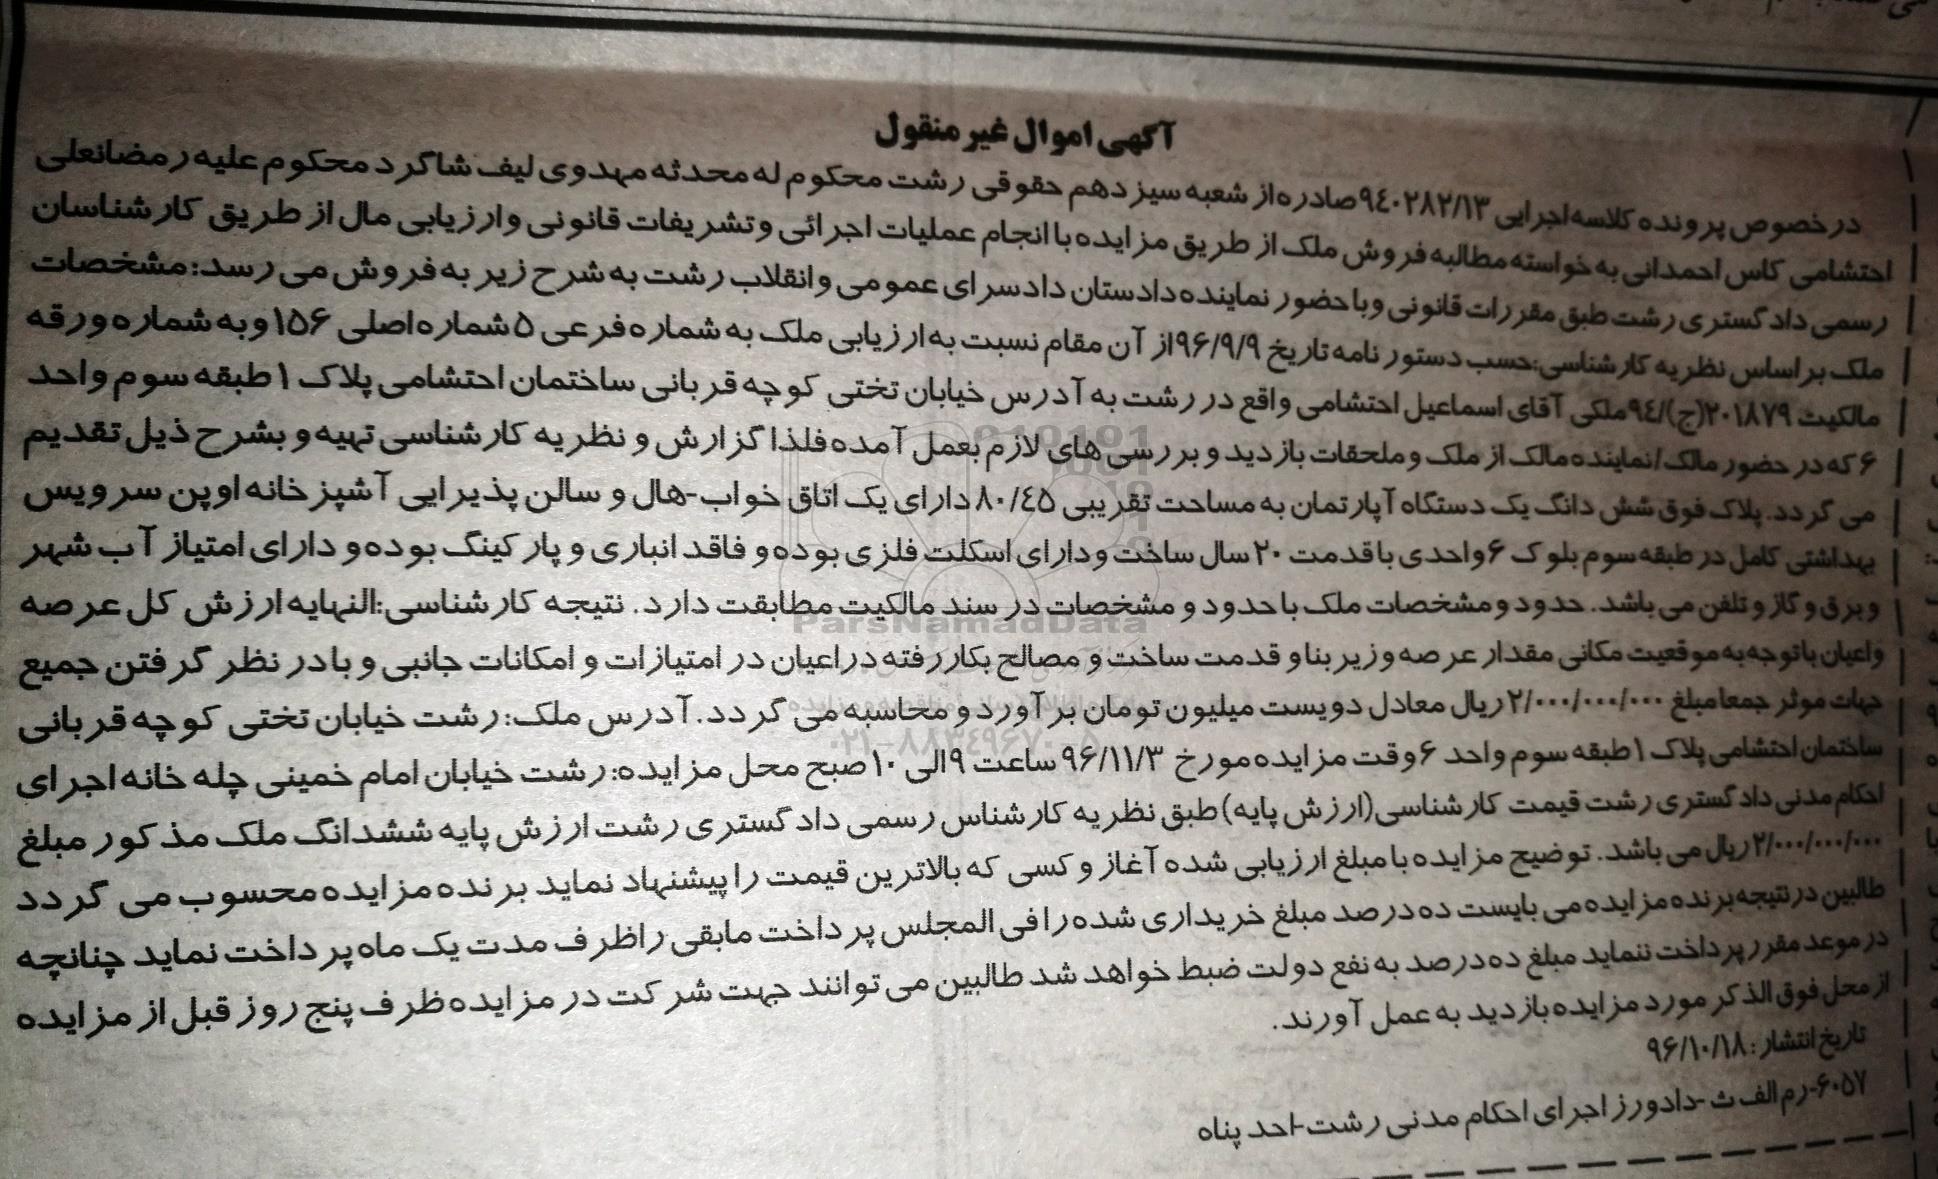 آگهی اموال غیر منقول
در خصوص پرونده کلاسه اجرایی ۹۴۰۲۸۲/۱۳ صادره از شعبه سیزدهم حقوقی رشت محکوم له محدثه مهدوی لیف شاگرد محکوم علیه رمضانعلی
احتشامی کاس احمدانی به خواسته مطالبه فروش ملک از طریق مزایده با انجام عملیات اجرائی و تشریفات قانونی و ارزیابی مال از طریق کارشناسان
رسمی دادگستری رشت طبق مقررات قانونی و با حضور نماینده دادستان دادسرای عمومی و انقلاب رشت به شرح زیر به فروش می رسد: مشخصات
ملک بر اساس نظریه کارشناسی: حسب دستور نامه تاریخ ۹۶/۹/۹ از آن مقام نسبت به ارزیابی ملک به شماره فرعی ۵ شماره اصلی ۱۵۶ و به شماره ورقه
مالکیت ۲۰۱۸۷۹(ج)/۹۴ ملکی آقای اسماعیل احتشامی واقع در رشت به آدرس خیابان تختی کوچه قربانی ساختمان احتشامی پلاک ۱ طبقه سوم واحد
۶ که در حضور مالک/نماینده مالک از ملک و ملحقات بازدید و بررسی های لازم بعمل آمده فلذا گزارش و نظریه کارشناسی تهیه و بشرح ذیل تقدیم
می گردد. پلاک فوق شش دانگ یک دستگاه آپارتمان به مساحت تقریبی ۸۰/۴۵ دارای یک اتاق خواب-هال و سالن پذیرایی آشپزخانه اوپن سرویس
بهداشتی کامل در طبقه سوم بلوک ۶ واحدی با قدمت ۲۰ سال ساخت و دارای اسکلت فلزی بوده و فاقد انباری و پارکینگ بوده و دارای امتیاز آب شهر
و برق و گاز و تلفن می باشد. حدود و مشخصات ملک با حدود و مشخصات در سند مالکیت مطابقت دارد. نتیجه کارشناسی: النهایه ارزش کل عرصه
و اعیان با توجه به موقعیت مکانی مقدار عرصه و زیر بنا و قدمت ساخت و مصالح بکار رفته در اعیان در امتیازات و امکانات جانبی و با در نظر گرفتن جمیع
جهات موثر جمعا مبلغ ۲/۰۰۰/۰۰۰/۰۰۰ ریال معادل دویست میلیون تومان بر آورد و محاسبه می گردد. آدرس ملک: رشت خیابان تختی کوچه قربانی
ساختمان احتشامی پلاک ۱ طبقه سوم واحد ۶ وقت مزایده مورخ ۹۶/۱۱/۳ ساعت ۹ الی ۱۰ صبح محل مزایده: رشت خیابان امام خمینی چله خانه اجرای
احکام مدنی دادگستری رشت قیمت کارشناسی (ارزش پایه) طبق نظریه کارشناس رسمی دادگستری رشت ارزش پایه ششدانگ ملک مذکور مبلغ
۲/۰۰۰/۰۰۰/۰۰۰ ریال می باشد. توضیح مزایده با مبلغ ارزیابی شده آغاز و کسی که بالاترین قیمت را پیشنهاد نماید برنده مزایده محسوب می گردد
طالبین در نتیجه برنده مزایده می بایست ده درصد مبلغ خریداری شده را فی المجلس پرداخت مابقی را ظرف مدت یک ماه پرداخت نماید چنانچه
در موعد مقرر پرداخت ننماید مبلغ ده درصد به نفع دولت ضبط خواهد شد طالبین می توانند جهت شرکت در مزایده ظرف پنج روز قبل از مزایده
از محل فوق الذکر مورد مزایده بازدید به عمل آورند.
تاریخ انتشار: ۹۶/۱۰/۱۸
۶۰۵۷-رم الف ث -دادورز اجرای احکام مدنی رشت-احد پناه
ParsNamadData
۰۲۱-۸۸۳۴۹۶۷۰-۵